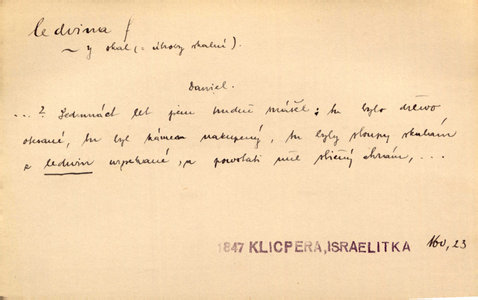 ledvina f
~ y skal (= útroby skalní).
Daniel.
...? Sedmnáct let jsem trudně mýtil; tu bylo dřevo
otesané, tu byl kámen nakupený, tu byly sloupy skalám
z ledvin vypekané, a povstati měl sličný chrám, ...
1847 KLICPERA, ISRAELITKA 160, 23